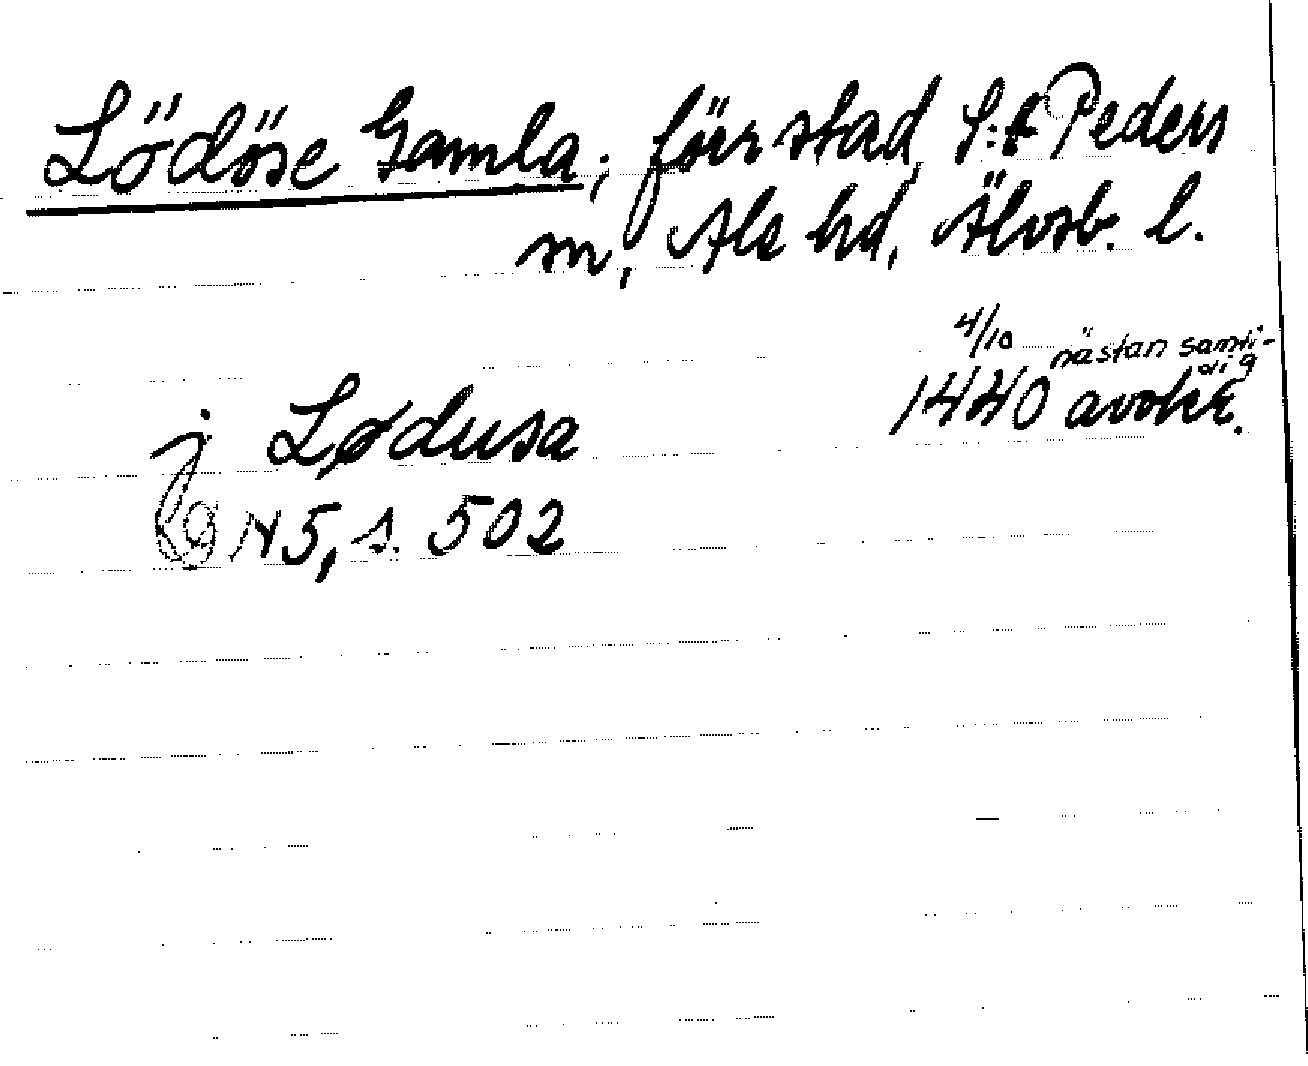 Lödöse Gamla, förr stad, S:t Peders
sn, Ale hd, Älvsb. l.
4/10 nästan samti-
dig
1440 avskr.
j Lødusa
N5, s. 502